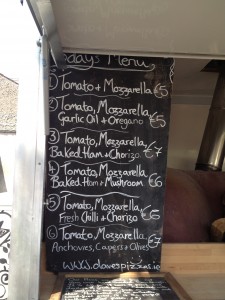 Todays Menu
1 Tomato + Mozzarella €5
2 Tomato, Mozzarella
Garlic Oil + Oregano €5
3 Tomato, Mozzarella
Baked Ham + Chorizo €7
4 Tomato, Mozzarella
Baked Ham + Mushroom €6
5 Tomato, Mozzarella,
Fresh Chilli + Chorizo €6
6 Tomato Mozzarella
Anchovies, Capers + Olives €7